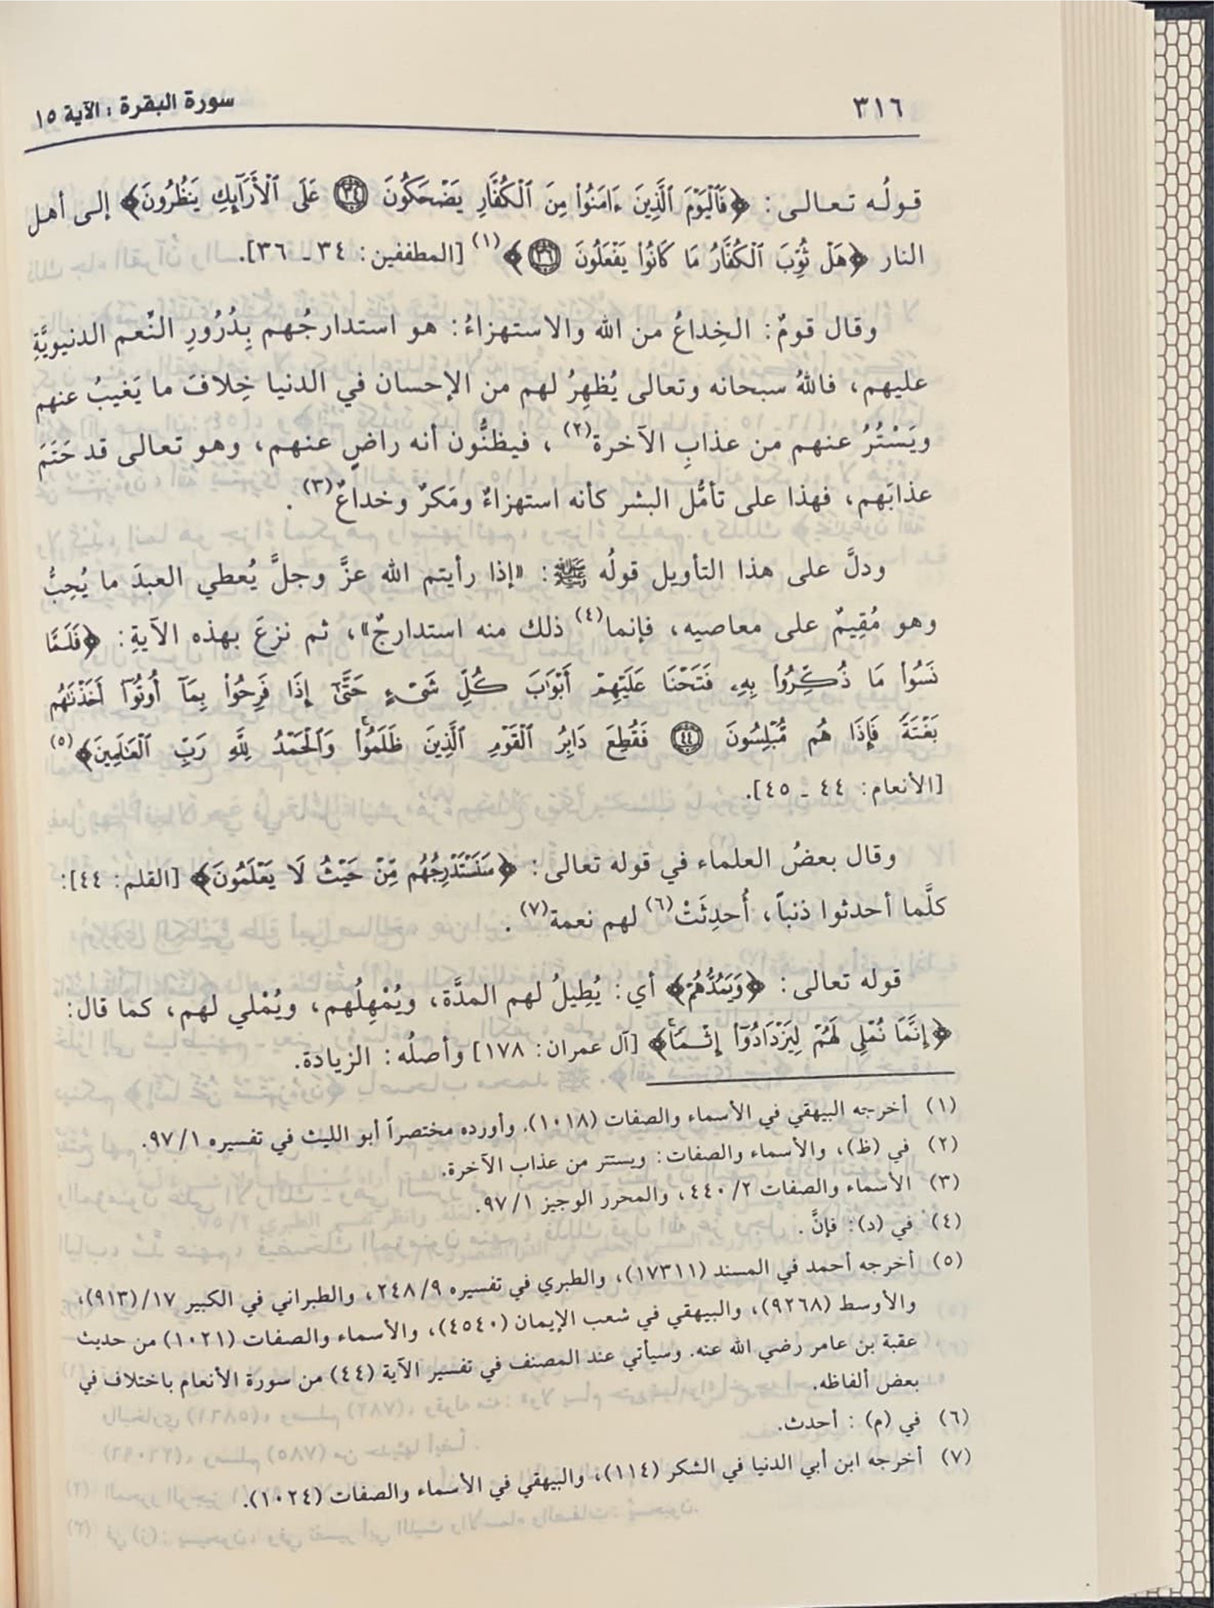 ٣١٦
سورة البقرة : الآية ١٥
قولُه تعالى: ﴿فَٱلۡيَوۡمَ ٱلَّذِينَ ءَامَنُواْ مِنَ ٱلۡكُفَّارِ يَضۡحَكُونَ ٣٤ عَلَى ٱلۡأَرَآئِكِ يَنظُرُونَ﴾ إلى أهل
النار ﴿هَلۡ ثُوِّبَ ٱلۡكُفَّارُ مَا كَانُواْ يَفۡعَلُونَ ٣٦﴾(١) [المطففين: ٣٤ ـ ٣٦].
وقال قومٌ: الخِداعُ من الله والاستهزاءُ: هو استدراجُهم بِدُرُورِ النِّعم الدنيويَّةِ
عليهم، فاللهُ سبحانه وتعالى يُظهِرُ لهم من الإحسان في الدنيا خِلافَ ما يَغيبُ عنهم
ويَسْتُرُ عنهم من عذابِ الآخرة(٢)، فيظنُّون أنه راضٍ عنهم، وهو تعالى قد حَتَمَ
عذابَهم، فهذا على تأمُّل البشر كأنه استهزاءٌ ومَكرٌ وخداعٌ(٣).
ودلَّ على هذا التأويل قولُه ﷺ: «إذا رأيتم الله عزَّ وجلَّ يُعطي العبدَ ما يُحِبُّ
وهو مُقِيمٌ على معاصيه، فإنما(٤) ذلك منه استدراجٌ»، ثم نزعَ بهذه الآيةِ: ﴿فَلَمَّا
نَسُواْ مَا ذُكِّرُواْ بِهِۦ فَتَحۡنَا عَلَيۡهِمۡ أَبۡوَٰبَ كُلِّ شَيۡءٍ حَتَّىٰٓ إِذَا فَرِحُواْ بِمَآ أُوتُوٓاْ أَخَذۡنَٰهُم
بَغۡتَةً فَإِذَا هُم مُّبۡلِسُونَ ٤٤ فَقُطِعَ دَابِرُ ٱلۡقَوۡمِ ٱلَّذِينَ ظَلَمُواْۚ وَٱلۡحَمۡدُ لِلَّهِ رَبِّ ٱلۡعَٰلَمِينَ﴾(٥)
[الأنعام: ٤٤ ـ ٤٥].
وقال بعضُ العلماء في قوله تعالى: ﴿سَنَسۡتَدۡرِجُهُم مِّنۡ حَيۡثُ لَا يَعۡلَمُونَ﴾ [القلم: ٤٤]:
كلَّما أحدثوا ذنباً، أُحدِثَتْ(٦) لهم نعمة(٧).
قوله تعالى: ﴿وَيَمُدُّهُمۡ﴾ أي: يُطِيلُ لهم المدَّة، ويُمْهِلُهم، ويُمْلي لهم، كما قال:
﴿إِنَّمَا نُمۡلِي لَهُمۡ لِيَزۡدَادُوٓاْ إِثۡمٗاۖ﴾ [آل عمران: ١٧٨] وأصلُه: الزيادة.
(١) أخرجه البيهقي في الأسماء والصفات (١٠١٨). وأورده مختصراً أبو الليث في تفسيره ٩٧/١.
(٢) في (ظ)، والأسماء والصفات: ويستتر من عذاب الآخرة.
(٣) الأسماء والصفات ٤٤٠/٢، والمحرر الوجيز ٩٧/١.
(٤) في (د): فإنَّ.
(٥) أخرجه أحمد في المسند (١٧٣١١)، والطبري في تفسيره ٢٤٨/٩، والطبراني في الكبير ١٧/(٩١٣)،
والأوسط (٩٢٦٨)، والبيهقي في شعب الإيمان (٤٥٤٠)، والأسماء والصفات (١٠٢١) من حديث
عقبة بن عامر رضي الله عنه. وسيأتي عند المصنف في تفسير الآية (٤٤) من سورة الأنعام باختلاف في
بعض ألفاظه.
(٦) في (م) : أحدث.
(٧) أخرجه ابن أبي الدنيا في الشكر (١١٤)، والبيهقي في الأسماء والصفات (١٠٢٤).